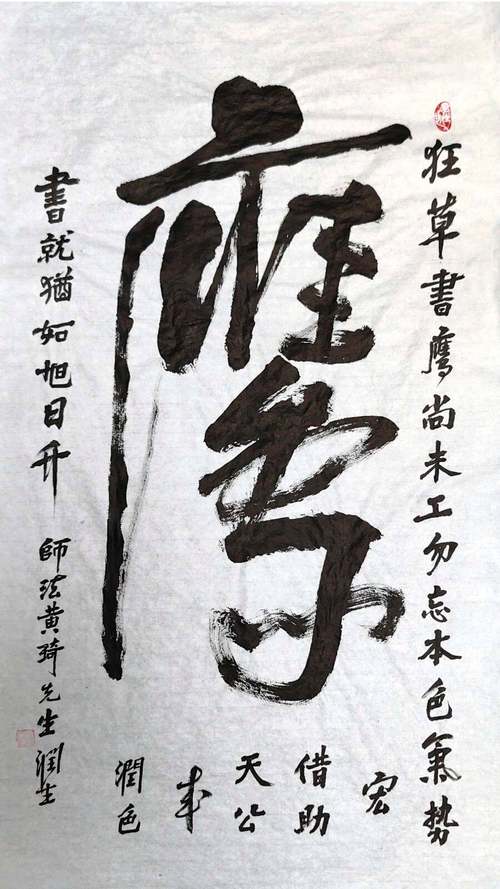 狂草書鷹尚未工勿忘本色氣勢
宏
借助
天公
来
潤色
鷹
書就猶如旭日升
師法黄琦先生 潤生